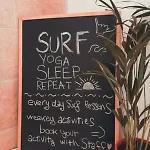 SURF
YOGA
SLEEP
REPEAT
every day Surf lessons
weakly activities
book your
activity with Staff